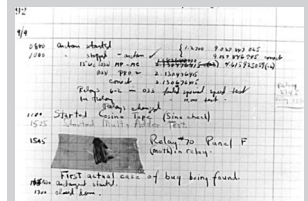 92
9/9
0800 antan started
1000 " stopped - antan ✓
13" uc (032) MP - MC
033 PRO 2 2.130476415
conect 2.130676415
Relays 6-2 in 033 failed special speed test
in relay
Relays changed
1100 Started Cosine Tape (Sine check)
1525 Started Multy Adder Test
1545 Relay #70 Panel F
(moth) in relay.
First actual case of bug being found.
antangent started.
1700 closed down.